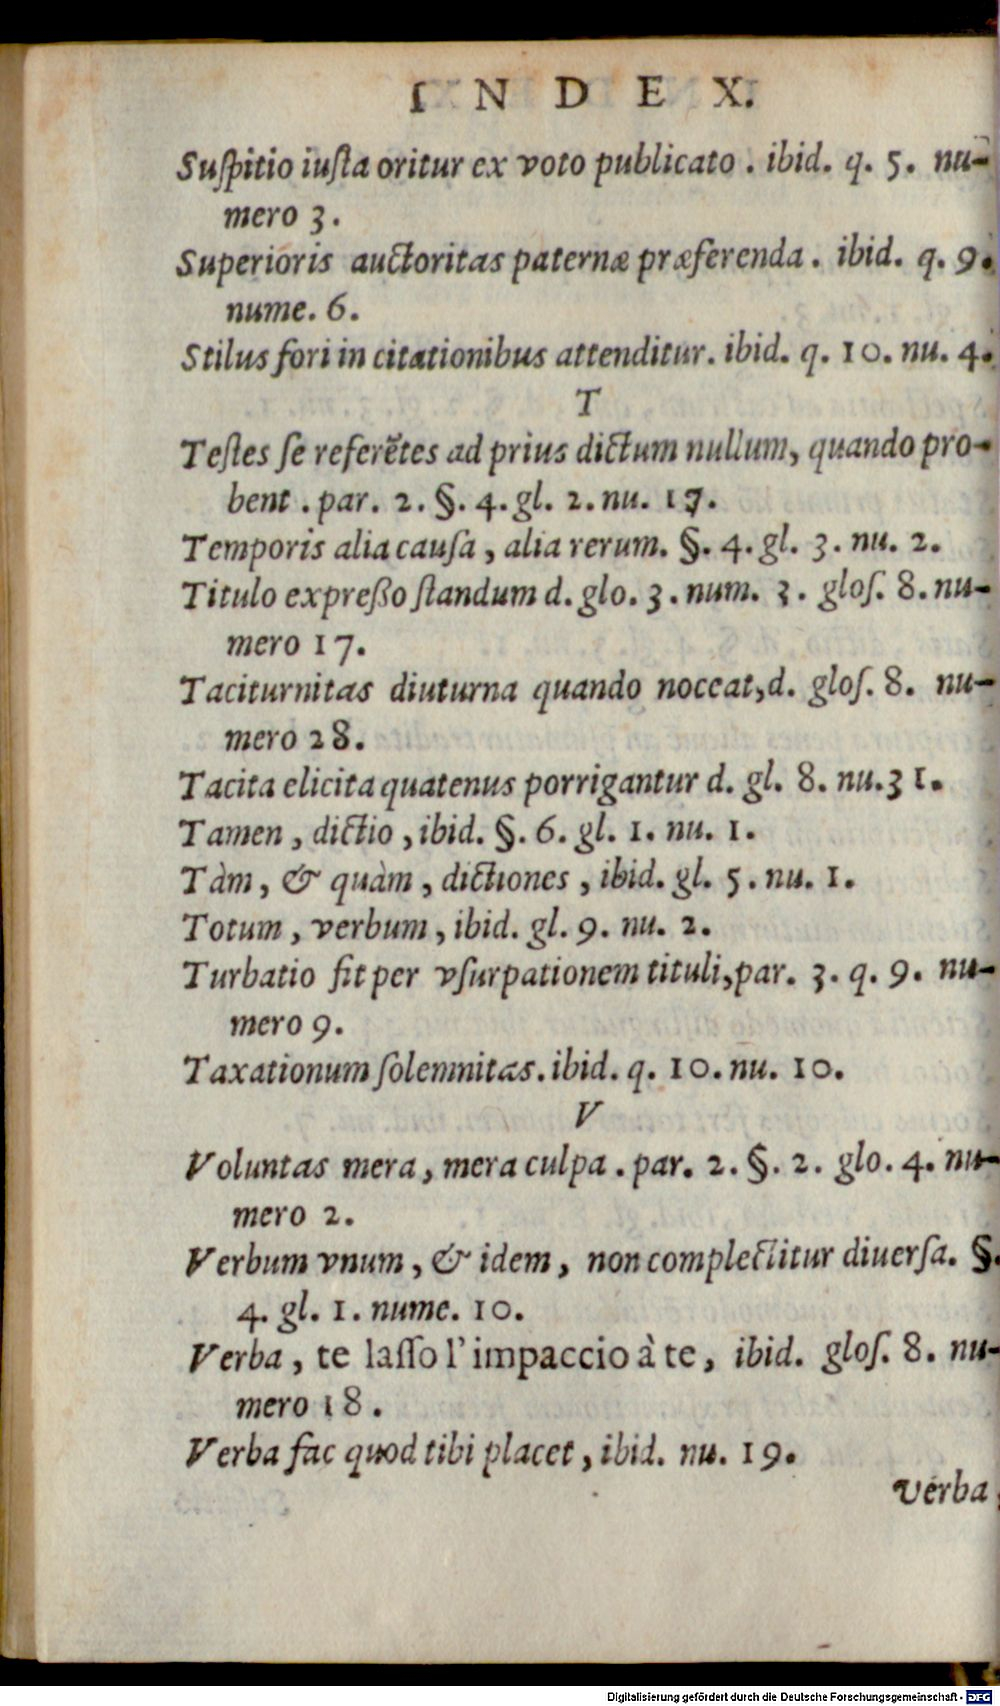 INDEX.
Suſpitio iuſta oritur ex voto publicato. ibid. q. 5. nu-
mero 3.
Superioris auctoritas paternæ præferenda. ibid. q. 9.
nume. 6.
Stilus fori in citationibus attenditur. ibid. q. 10. nu. 4.
T
Teſtes ſe referẽtes ad prius dictum nullum, quando pro-
bent. par. 2. §. 4. gl. 2. nu. 17.
Temporis alia cauſa, alia rerum. §. 4. gl. 3. nu. 2.
Titulo expreßo ſtandum d. glo. 3. num. 3. gloſ. 8. nu-
mero 17.
Taciturnitas diuturna quando noceat, d. gloſ. 8. nu-
mero 28.
Tacita elicita quatenus porrigantur d. gl. 8. nu. 31.
Tamen, dictio, ibid. §. 6. gl. 1. nu. 1.
Tàm, & quàm, dictiones, ibid. gl. 5. nu. 1.
Totum, verbum, ibid. gl. 9. nu. 2.
Turbatio fit per vſurpationem tituli, par. 3. q. 9. nu-
mero 9.
Taxationum ſolemnitas. ibid. q. 10. nu. 10.
V
Voluntas mera, mera culpa. par. 2. §. 2. glo. 4. nu-
mero 2.
Verbum vnum, & idem, non complectitur diuerſa. §.
4. gl. 1. nume. 10.
Verba, te laſſo l'impaccio à te, ibid. gloſ. 8. nu-
mero 18.
Verba fac quod tibi placet, ibid. nu. 19.
Verba,
Digitalisierung gefördert durch die Deutsche Forschungsgemeinschaft - DFG